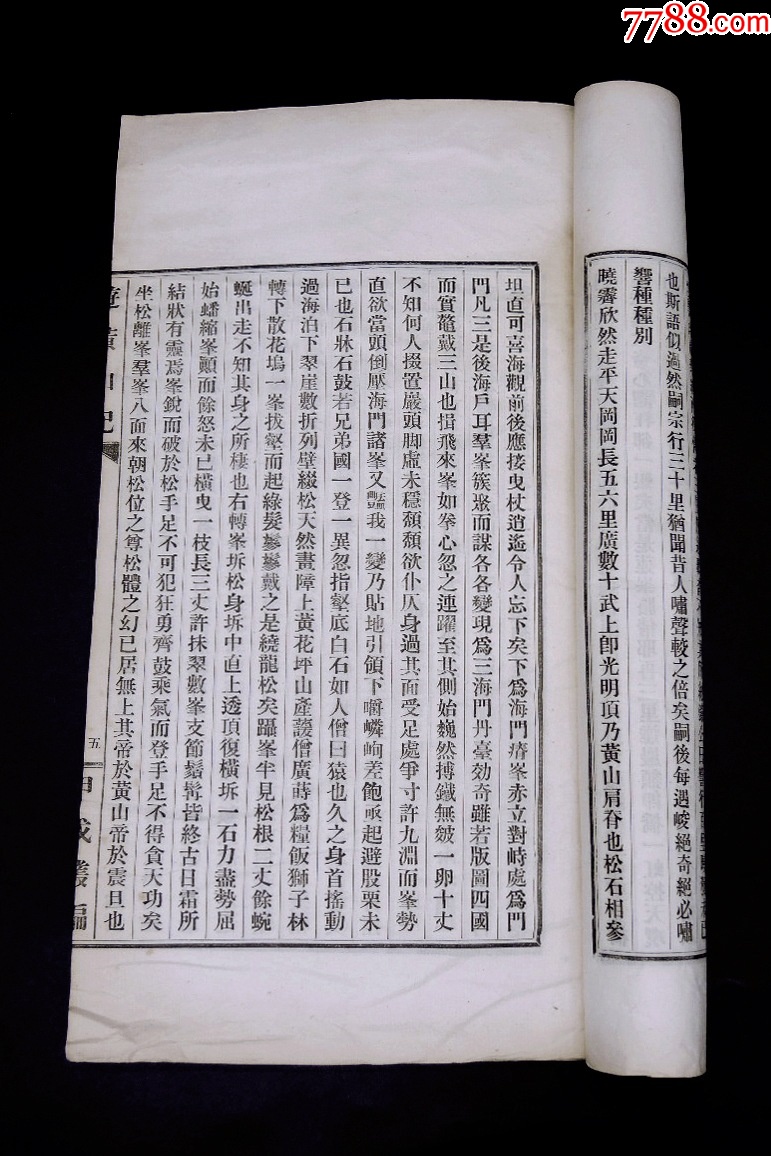 7788.com
也斯語似過然嗣宗行三十里猶聞昔人嘯聲較之倍矣嗣後每遇峻絕奇絕必嘯
響種種別
曉霽欣然走平天岡岡長五六里廣數十武上卽光明頂乃黃山肩脊也松石相參
坦直可喜海觀前後應接曳杖逍遙令人忘下矣下爲海門瘠峯赤立對峙處爲門
門凡三是後海戶耳羣峯簇聚而謀各各變現爲三海門丹臺効奇雖若版圖四國
而實鼇戴三山也揖飛來峯如拳心忽之連躍至其側始巍然搏鐵無皴一卵十丈
不知何人掇置巖頭脚虛未穩頽頽欲仆仄身過其面受足處爭寸許九淵而峯勢
直欲當頭倒壓海門諸峯又我一變乃貼地引領下嚼嶙峋差飽亟起避股栗未
已也石牀石鼓若兄弟國一登一異忽指壑底白石如人僧曰猿也久之身首搖動
過海泊下翠崖數折列壁綴松天然畫障上黃花坪山產護僧廣蒔爲糧飯獅子林
轉下散花塢一峯拔壑而起綠髮鬖鬖戴之是繞龍松矣躡峯半見松根二丈餘蜿
蜒出走不知其身之所棲也右轉峯坼松身坼中直上透頂復橫坼一石力盡勢屈
始蟠縮峯顚而餘怒未已橫曳一枝長三丈許抹翠數峯支節鬅髯皆終古日霜所
結狀有靈焉峯銳而破於松手足不可犯狂勇齊鼓乘氣而登手足不得貪天功矣
坐松離峯羣峯八面來朝松位之尊松體之幻已居無上其帝於黃山帝於震旦也
遊黃山記
五
甲戌叢編